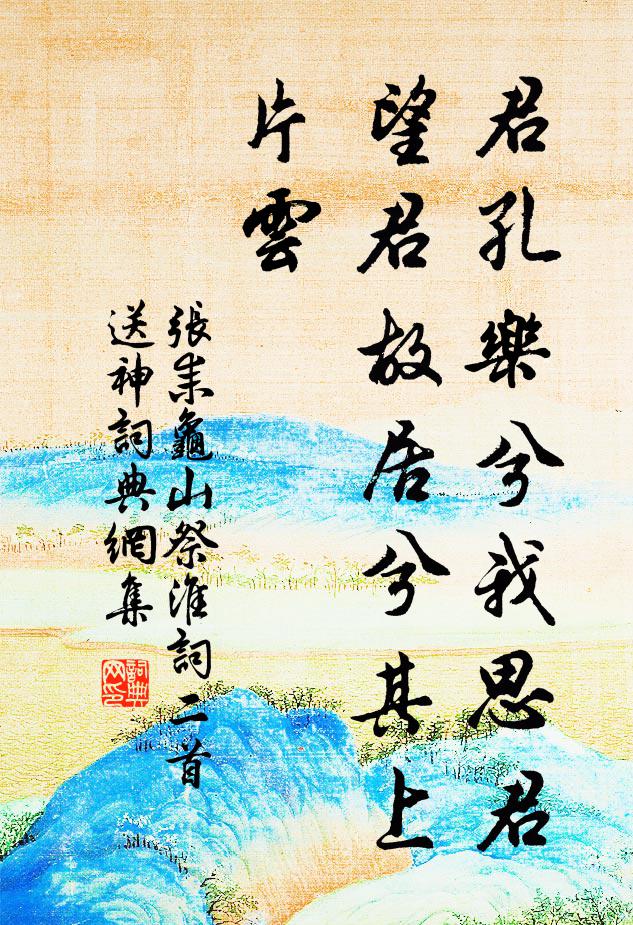 君孔樂兮我思君
望君故居兮其上
片雲
張耒龜山祭淮詞二首
送神詞典網集
詞典
网印